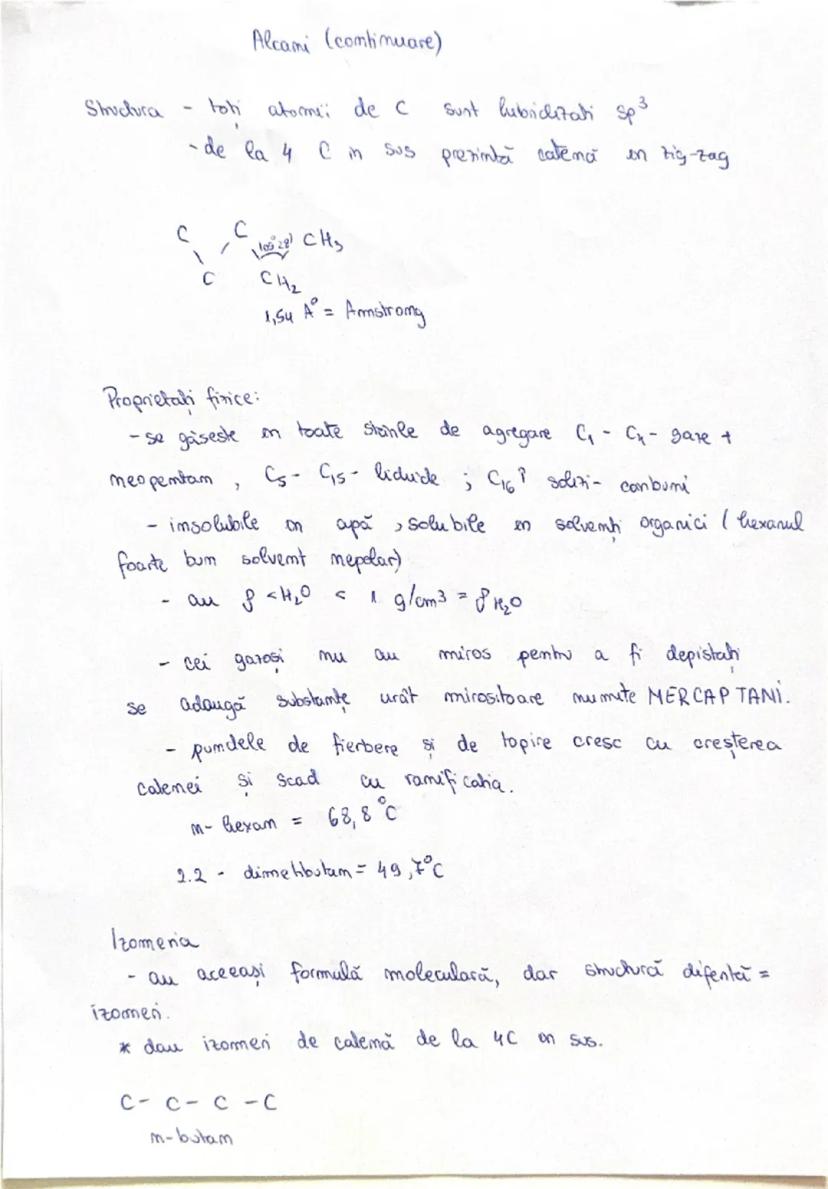 Alcani (continuare)
Structura - toți atomii de C sunt hibridizati sp³
- de la 4 C in sus prezintă catenă în zig-zag
C C 109°28' CH₃
C CH₂
1,54 A° = Amstrong
Proprietati fizice:
- se găseste în toate stările de agregare C₁ - C₄ - gaze +
neopentan, C₅ - C₁₅ - lichide ; C₁₆↑ solizi - carbuni
- insolubile în apă, solubile în solvenți organici (hexanul
foarte bun solvent nepolar)
- au ρ < H₂O < 1 g/cm³ = ρ H₂O
- cei gazoși nu au miros pentru a fi depistați
se adaugă substanțe urât mirositoare numite MERCAPTANI.
- punctele de fierbere și de topire cresc cu creșterea
catenei și scad cu ramificatia.
n-hexan = 68,8°C
2.2 - dimetilbutan = 49,7°C
Izomeria
- au aceeași formulă moleculară, dar structură difertă =
izomeri.
* dau izomeri de catenă de la 4C în sus.
C - C - C - C
n-butan